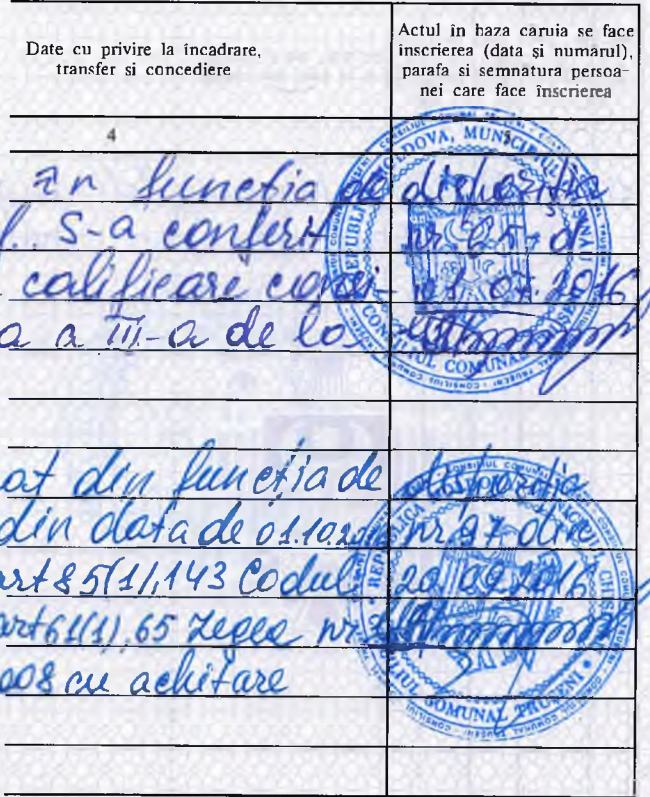 Date cu privire la încadrare,
transfer si concediere
Actul în baza caruia se face
înscrierea (data și numarul),
parafa si semnatura persoa-
nei care face înscrierea
4
5
în funcția de dispoziția
S-a conferit nr 65-d
calificare 1.07.2016
a III-a de
at din funcția de dispoziția
din data de 01.10.2016 nr 97 din
art 85(1), 143 Codul 20 09 2016
art 61(1), 65 Legea nr
008 cu achitare
CONSILIUL COMUNAL TRUȘENI
REPUBLICA MOLDOVA, MUNICIPIUL CHIȘINĂU
CONSILIUL COMUNAL TRUȘENI
REPUBLICA MOLDOVA, MUNICIPIUL CHIȘINĂU